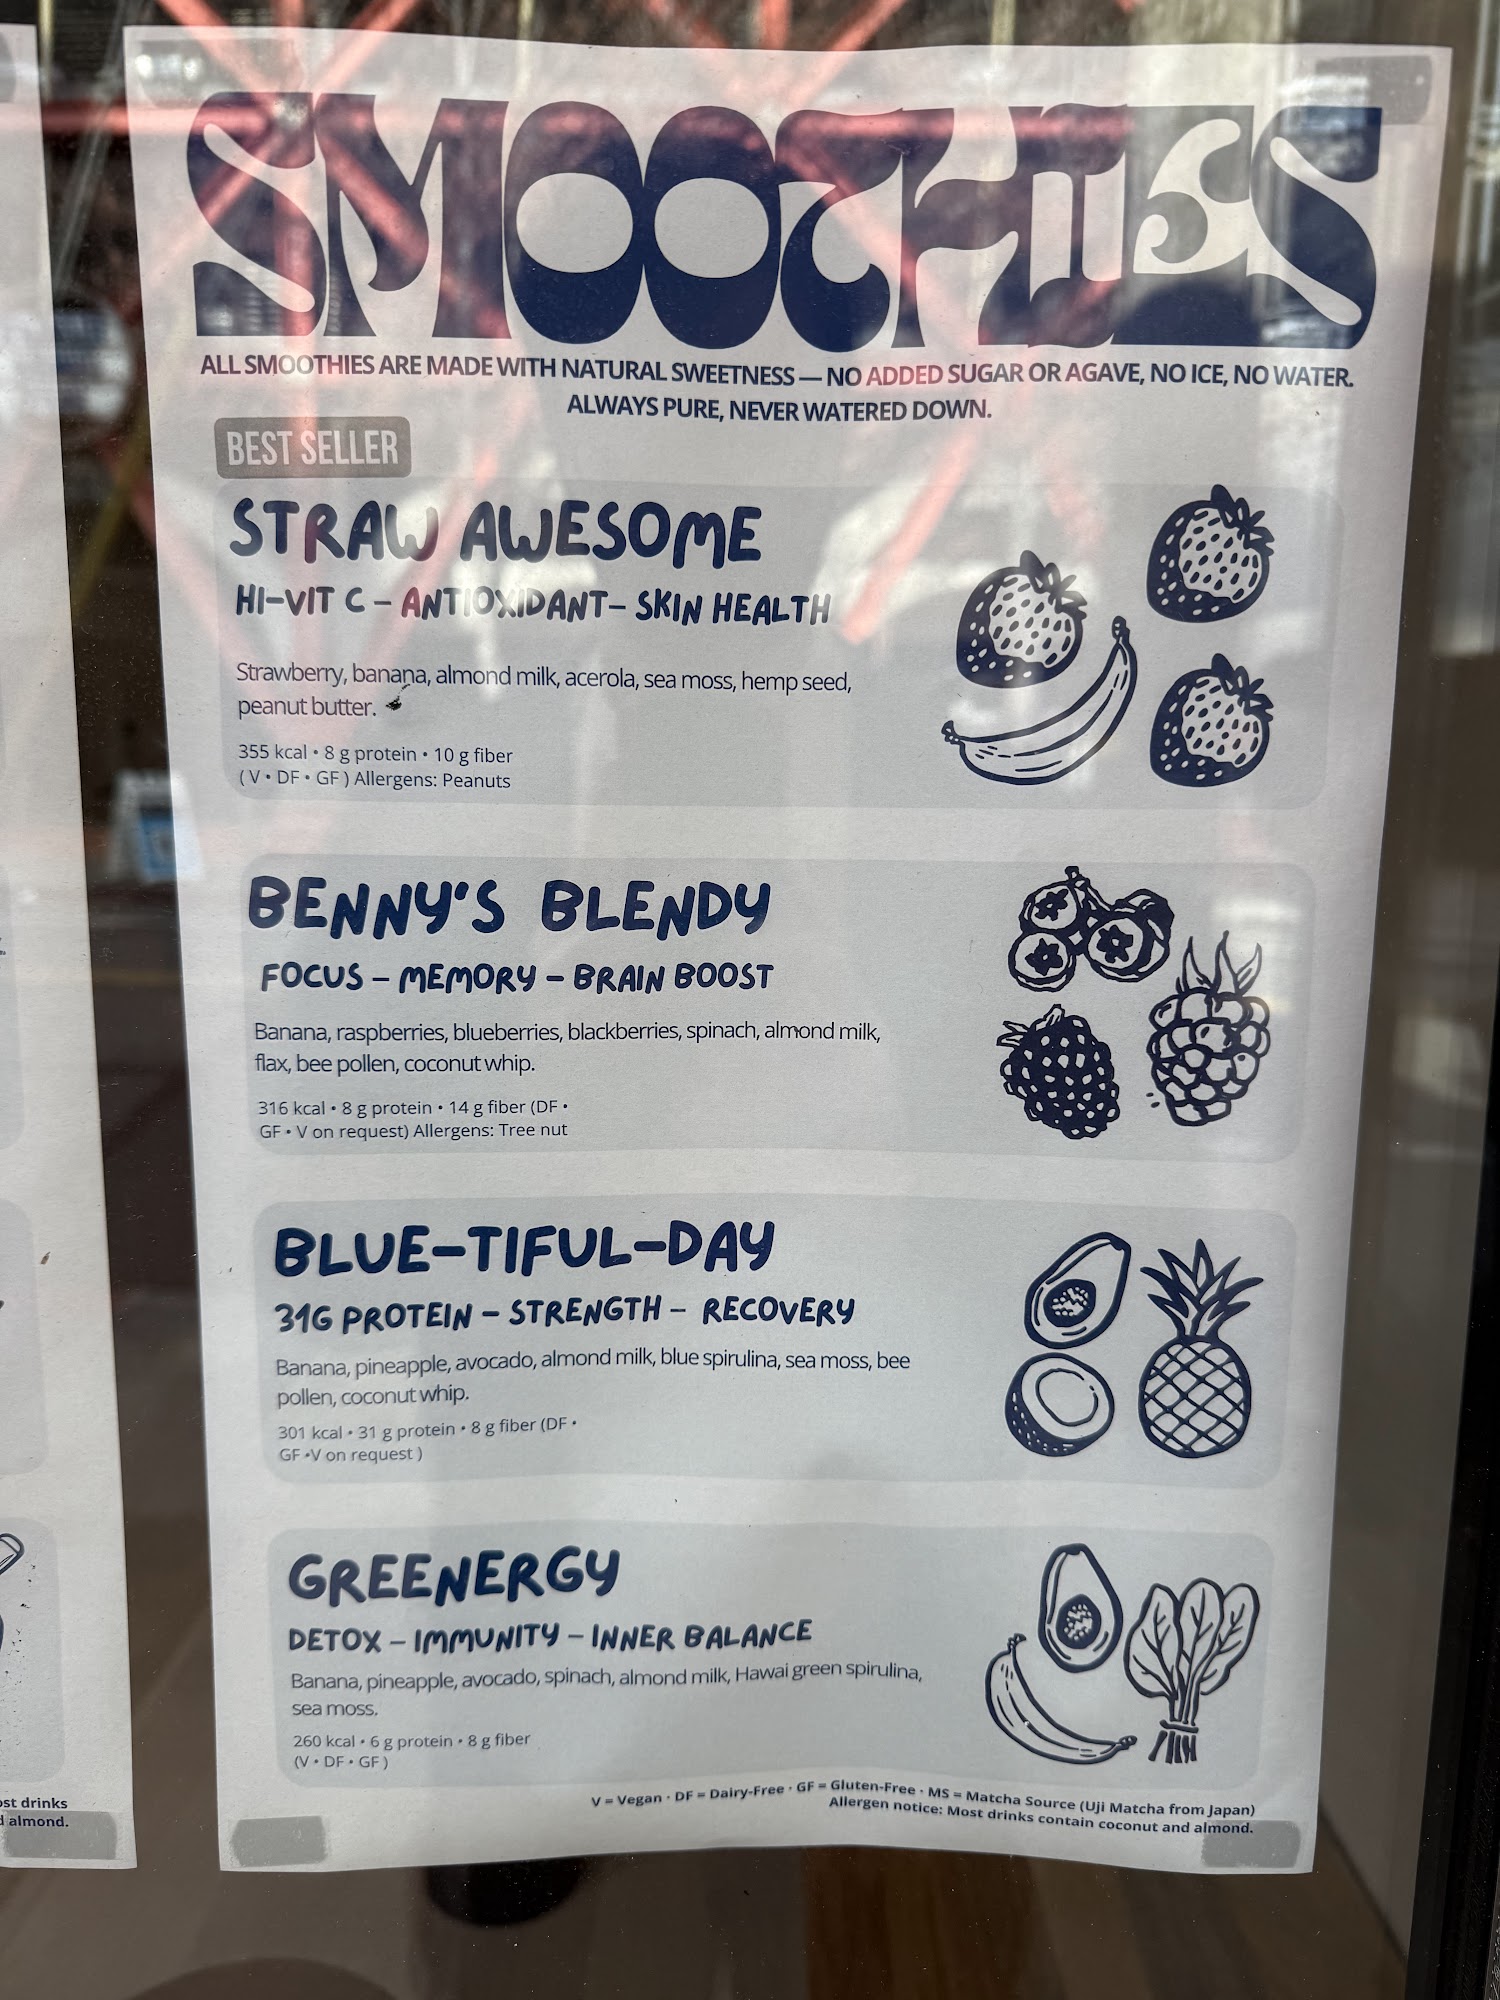 SMOOTHIES
ALL SMOOTHIES ARE MADE WITH NATURAL SWEETNESS — NO ADDED SUGAR OR AGAVE, NO ICE, NO WATER.
ALWAYS PURE, NEVER WATERED DOWN.
BEST SELLER
STRAW AWESOME
HI-VIT C - ANTIOXIDANT- SKIN HEALTH
Strawberry, banana, almond milk, acerola, sea moss, hemp seed,
peanut butter.
355 kcal • 8 g protein • 10 g fiber
( V • DF • GF ) Allergens: Peanuts
BENNY'S BLENDY
FOCUS - MEMORY - BRAIN BOOST
Banana, raspberries, blueberries, blackberries, spinach, almond milk,
flax, bee pollen, coconut whip.
316 kcal • 8 g protein • 14 g fiber (DF •
GF • V on request) Allergens: Tree nut
BLUE-TIFUL-DAY
31G PROTEIN - STRENGTH - RECOVERY
Banana, pineapple, avocado, almond milk, blue spirulina, sea moss, bee
pollen, coconut whip.
301 kcal • 31 g protein • 8 g fiber (DF •
GF •V on request )
GREENERGY
DETOX - IMMUNITY - INNER BALANCE
Banana, pineapple, avocado, spinach, almond milk, Hawai green spirulina,
sea moss.
260 kcal • 6 g protein • 8 g fiber
(V • DF • GF )
V = Vegan · DF = Dairy-Free · GF = Gluten-Free · MS = Matcha Source (Uji Matcha from Japan)
Allergen notice: Most drinks contain coconut and almond.
drinks
almond.